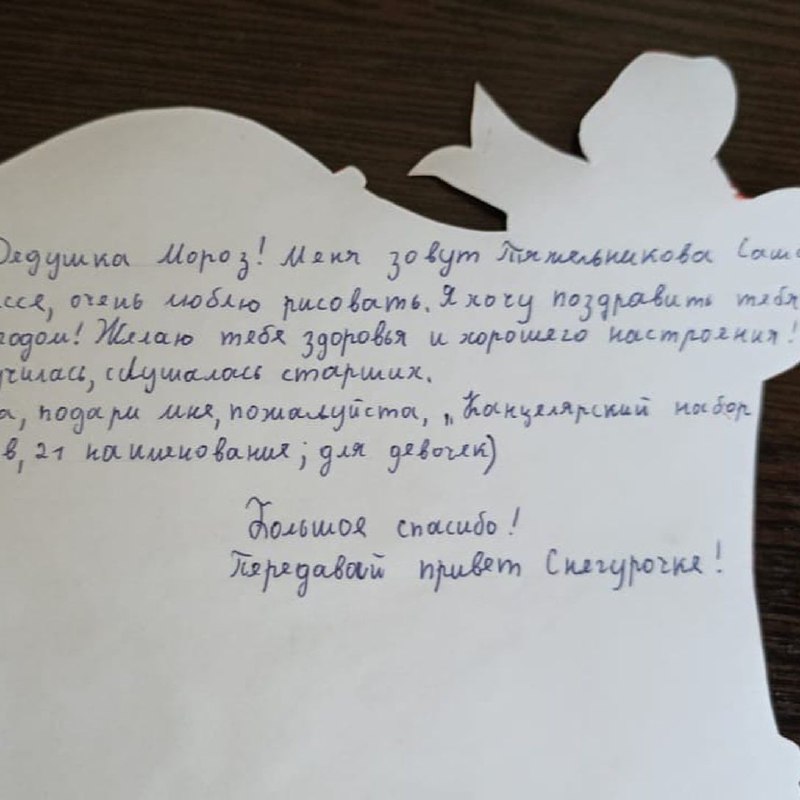 Дедушка Мороз! Меня зовут Тяжельникова Саша
ссе, очень люблю рисовать. Я хочу поздравить тебя
годом! Желаю тебе здоровья и хорошего настроения!
училась, слушалась старших.
а, подари мне, пожалуйста, „Канцелярский набор
в, 21 наименование; для девочек)
Большое спасибо!
Передавай привет Снегурочке!